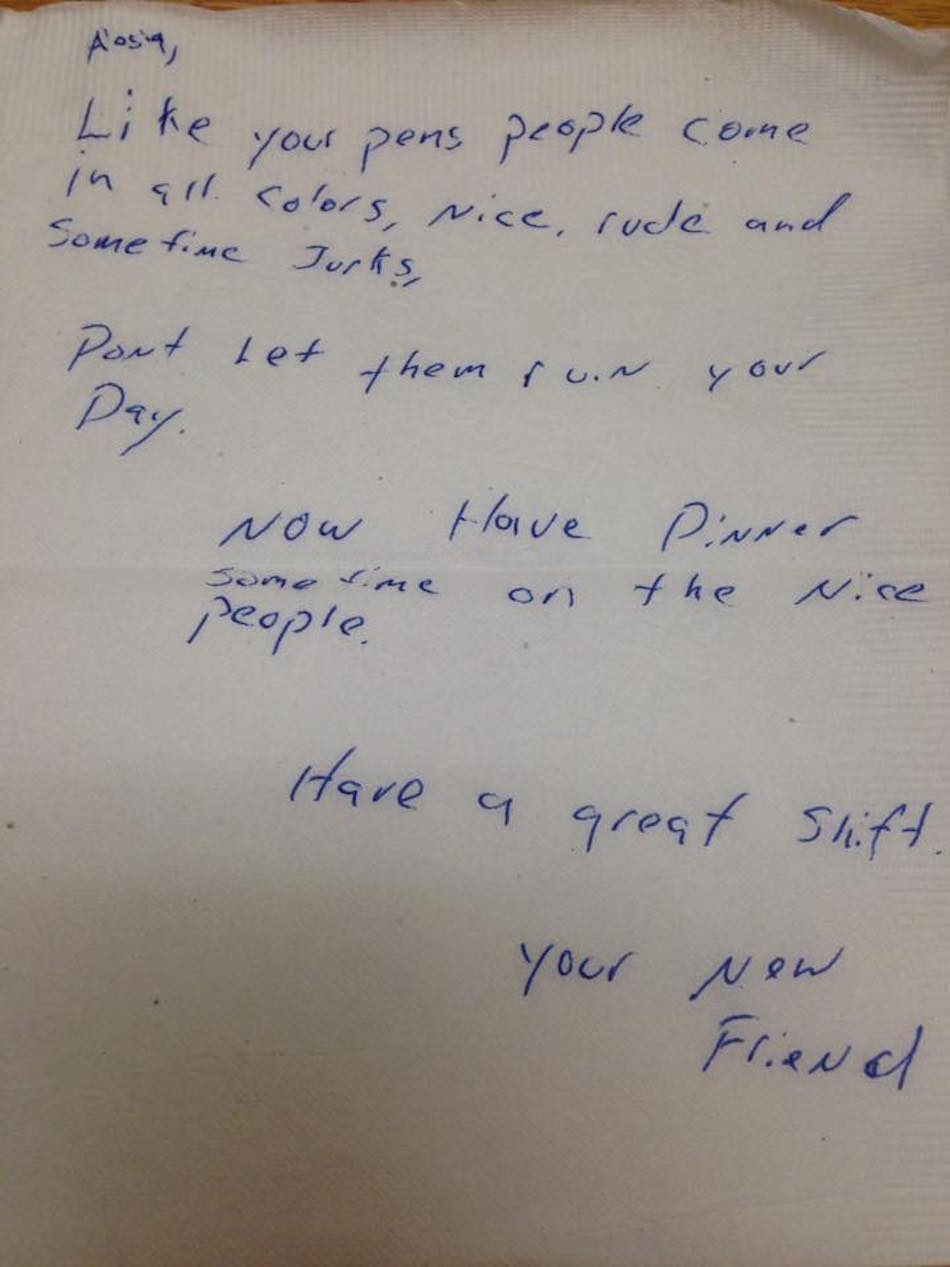 Like your pens people come
in all colors, Nice, rude and
sometime Jurks,
Dont Let them ruin your
Day.
NOW Have Dinner
sometime on the Nice
people.
Have a great shift.
your New
Friend